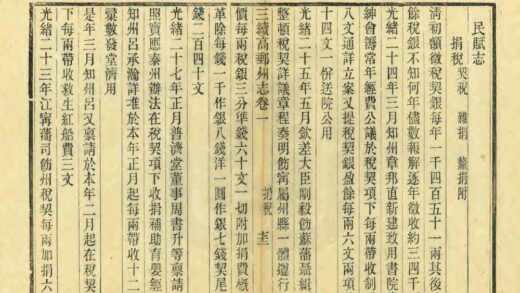 民賦志
捐稅 契稅 雜捐 釐捐附
清初額徵稅契銀每年一千四百五十一兩其後
餘稅銀不知何年儘數報解逐年徵收約三四千
光緒二十四年三月知州章邦直新建致用書院
紳會籌常年經費公議於稅契項下每兩帶收制
八文通詳立案又提稅契銀盈餘每兩六文兩項
十四文一併送院公用
光緒二十五年五月欽差大臣剛毅飭蘇藩聶緝
整頓稅契詳議章程奏明飭甯屬州縣一體遵行
三續高郵州志卷一 捐稅
價每兩稅銀三分準錢六十文一切附加捐費概
革除每錢一千作銀八錢洋一圓作銀七錢契尾
錢二百四十文
光緒二十七年正月普濟堂董事周書升等稟請
照寶應泰州辦法在稅契項下收捐補助育嬰經
知州呂承瀚詳准於本年正月起每兩帶收十二
彙數發堂濟用
是年三月知州呂又稟請於本年二月起在稅契
下每兩帶收救生紅船費三文
光緒二十三年江甯藩司飭州稅契每兩加捐六